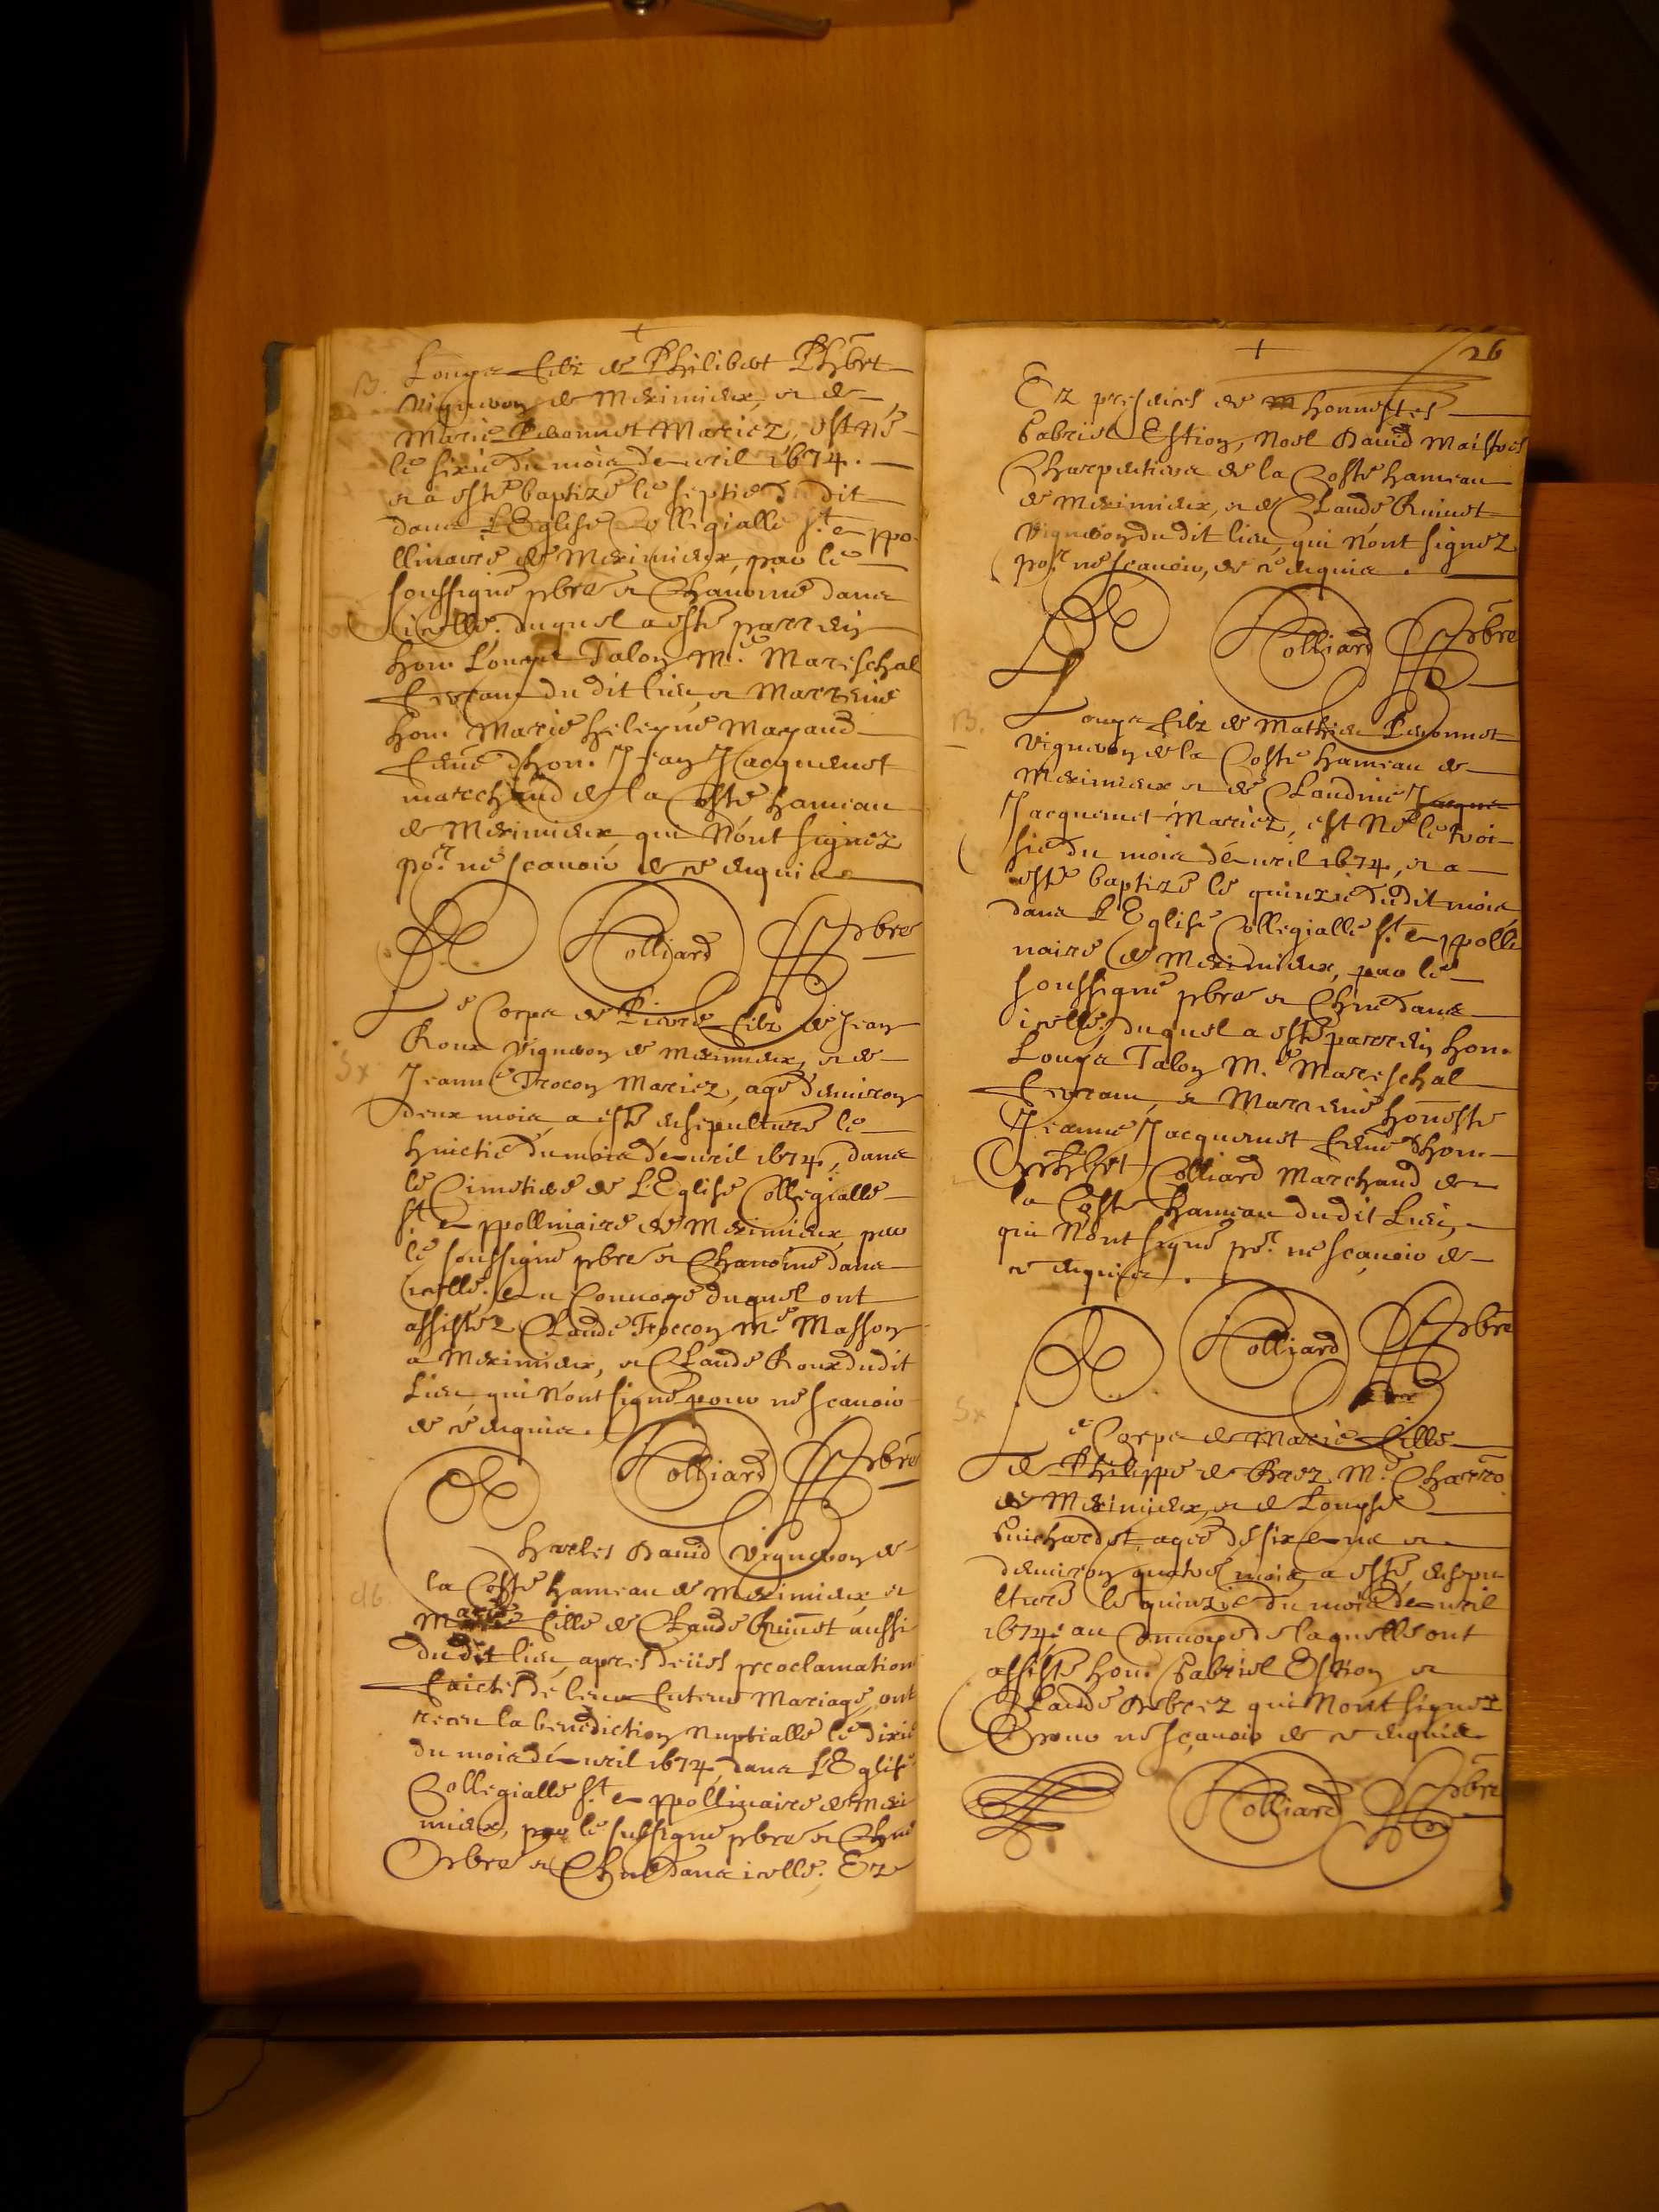 +
B. Louys filz de Philibert Phbert
vigneron de Meximieux, et de
Marie Peronnet Mariez, est né
le sixie du mois d'Avril 1674.
et a esté baptizé le septie dudit
dans L'Eglise Collegialle St Appo-
llinaire de Meximieux, par le
soussigné pbre et Chanoine dans
icelle. duquel a esté parrein
hon. Louys Talon Me. Mareschal
ferrant du dit lieu, et Marrene
hon. Marie heleyne Mayaud
feme d'hon. Jean Jacquemet
marchand de la Coste hameau
de Meximieux, qui N'ont signez
por. ne scavoir de ce enquis
Colliard pbre
Le Corps de Pierre filz de Jean
Roux vigneron de Meximieux, et de
Sx Jeanne Trocon Mariez, agé d'environ
deux mois, a esté ensepulturé le
huictie du mois d'Avril 1674, dans
le Cimetiere de L'Eglise Collegialle
St Appollinaire de Meximieux par
le soussigné pbre et Chanoine dans
icelle. Au Convoye duquel ont
assistez Claude Troccon Me Masson
a Meximieux, et Claude Roux dudit
Lieu, qui N'ont signé pour ne scavoir
de ce enquis.
Colliard pbre
Charles David vigneron de
la Coste hameau de Meximieux et
M fille de Claude aussi
du dit lieu, apres deües proclamation
faictes de leur futeur Mariage, ont
receu la benediction Nuptialle le dixie
du mois d'Avril 1674, dans L'Eglise
Collegialle St Appollinaire de Mexi
mieux, par le sussigné pbre et Chne
pbre et Chne dans icelle. Ez
+ 26
Ez presences de honnestes
Gabriel Estion, Noel David Maistres
Charpentiers de la Coste hameau
de Meximieux, et de Claude
vigneron du dit lieu, qui N'ont signez
por. ne scavoir, de ce enquis.
Colliard pbre
B. Louys filz de Mathieu Peronnet
vigneron de la Coste hameau de
Meximieux et de Claudine Jacque
Jacquemet Mariez, est Né le troi-
sie du mois d'Avril 1674, et a
esté baptizé le quinzie dudit mois
dans L'Eglise Collegialle St Appolli
naire de Meximieux, par le
soussigné pbre et Chne dans
icelle. duquel a esté parrein hon.
Louys Talon Me. Mareschal
ferrant, et Marrene honeste
Jeanne Jacquemet feme d'hon.
Colliard Marchand de
la Coste hameau dudit Lieu,
qui N'ont signé por. ne scavoir de
ce enquis.
Colliard pbre
Sx
Le Corps de Marie fille
de Philippe de Me. Charro
de Meximieux, et de Louyse
Guichardet, agée de six Ans et
d'environ quatre mois, a esté ensepu
lturé le quinzie du mois d'Avril
1674, au Convoye de laquelle ont
assisté hon. Gabriel Estion et
Claude qui N'ont signez
pour ne scavoir de ce enquis
Colliard pbre